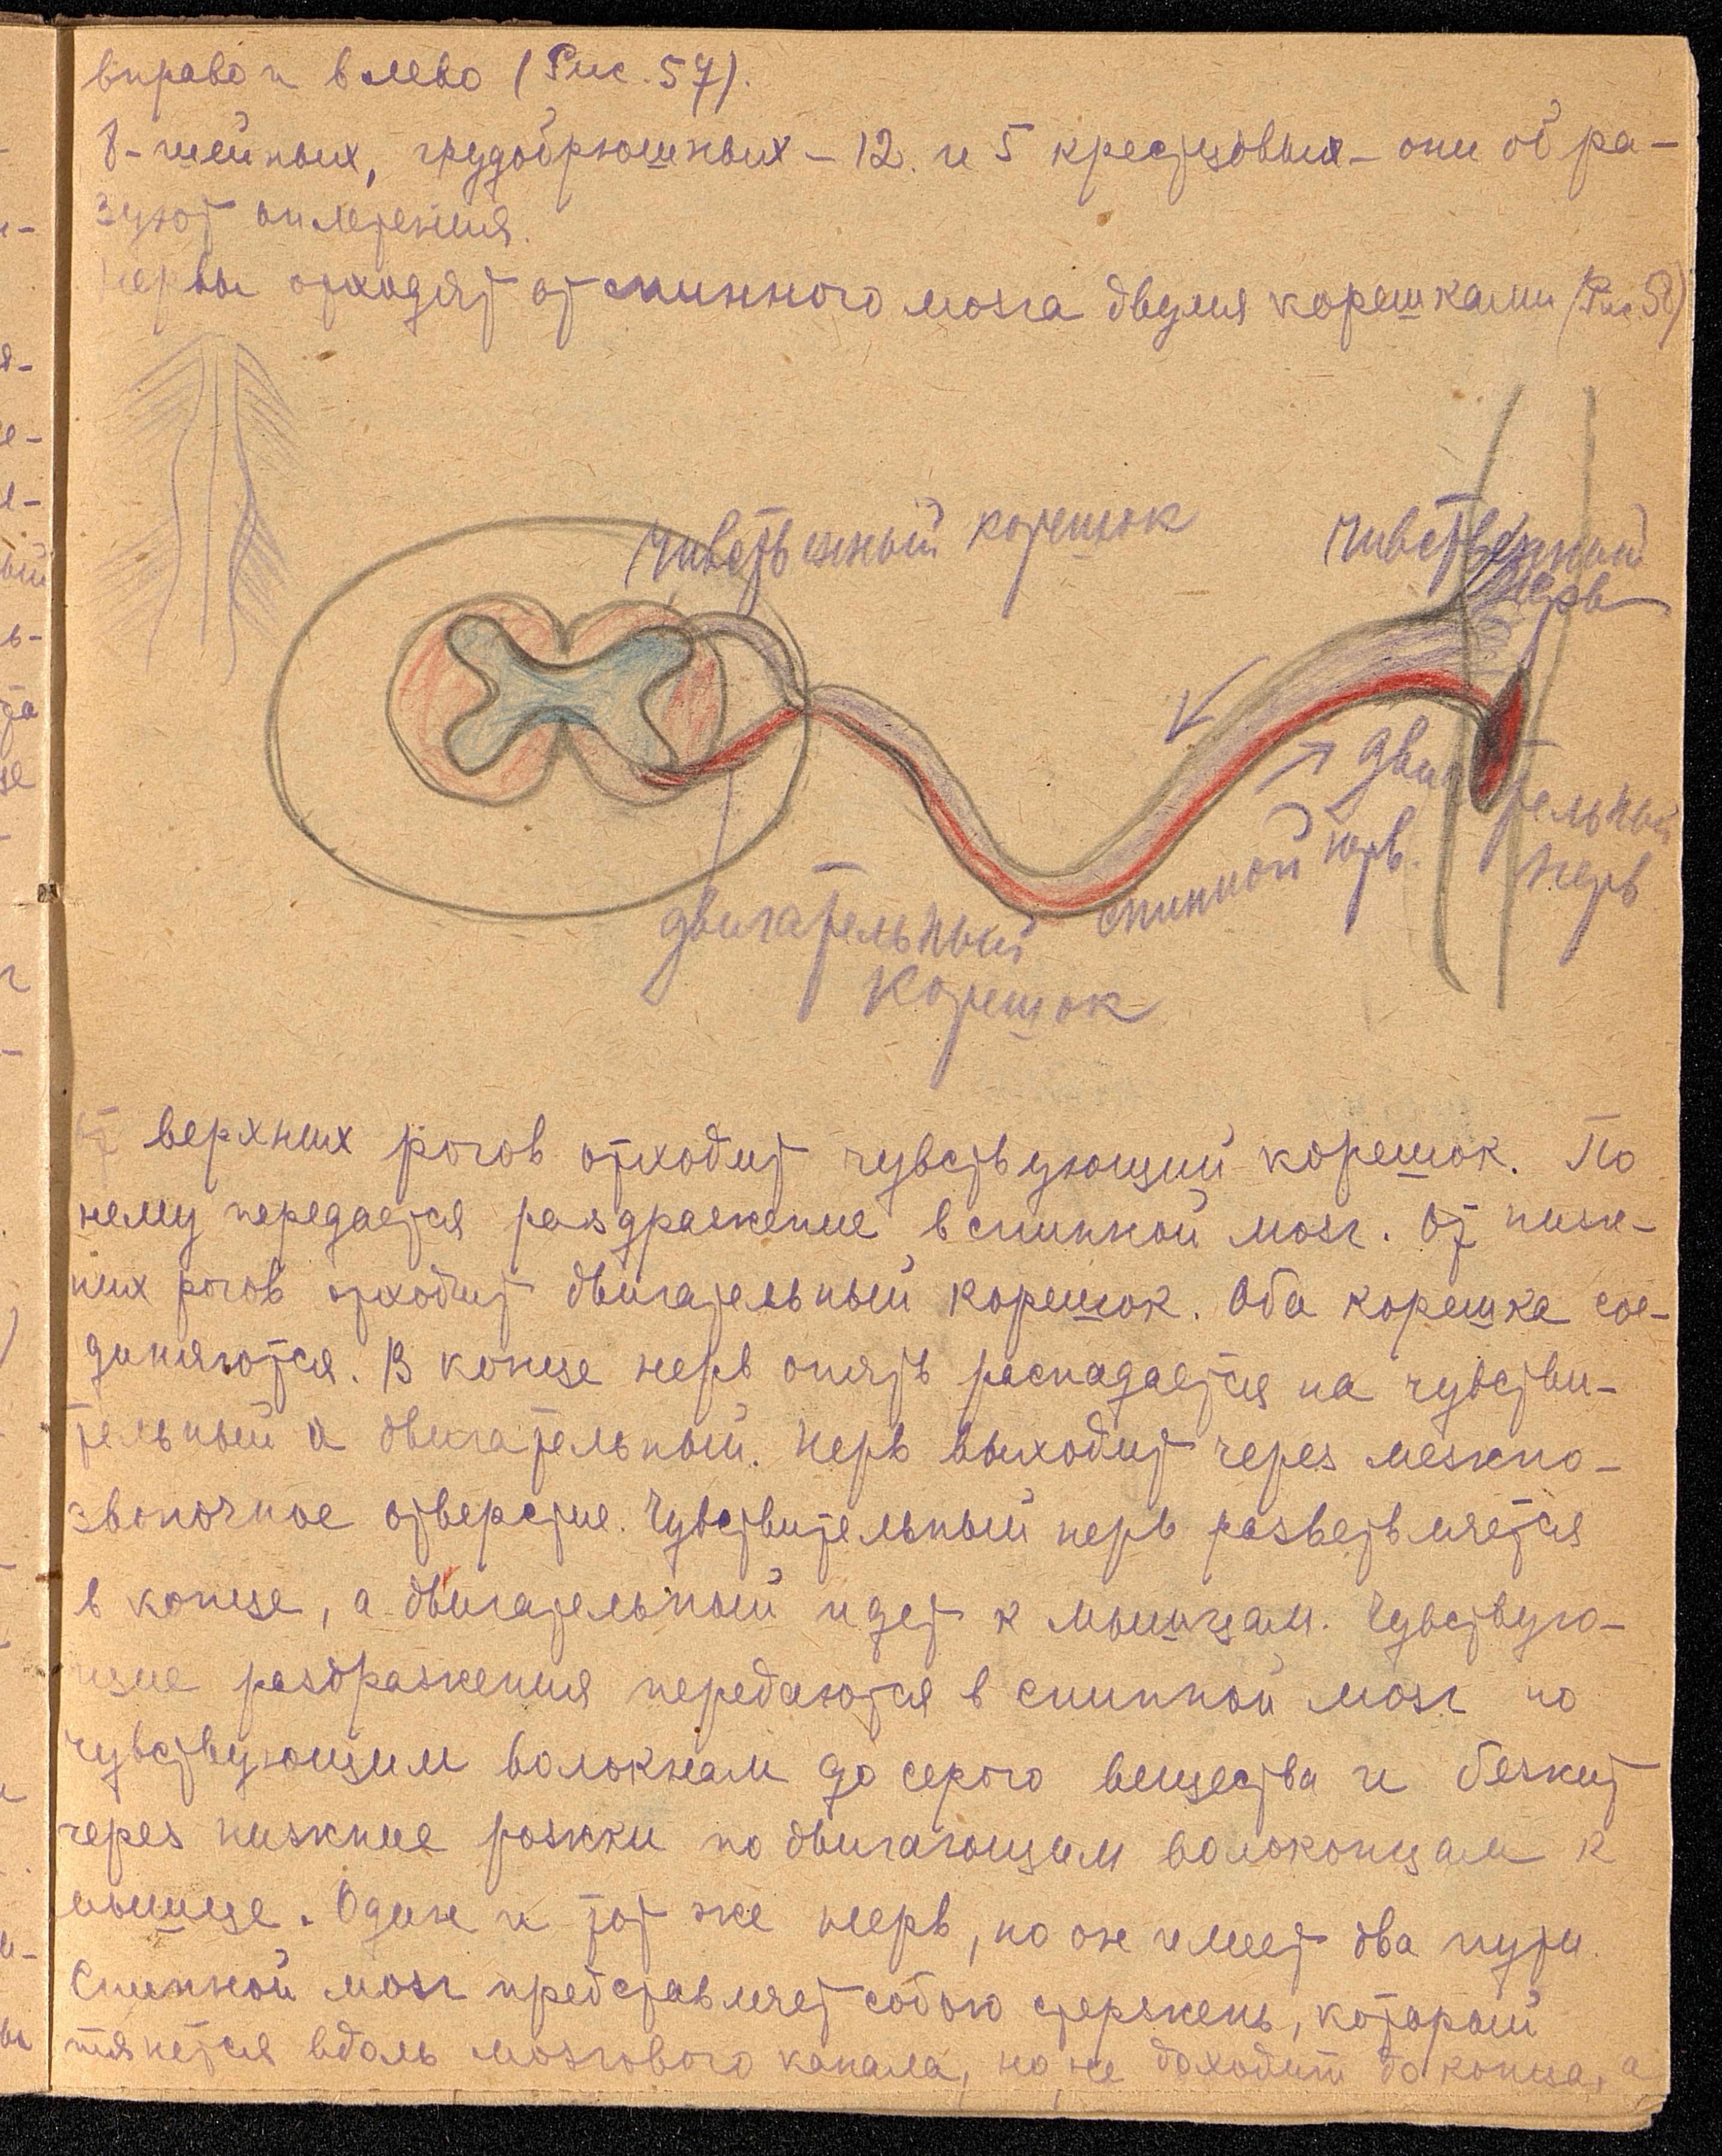 вправо и влево (Рис. 57).
8-шейных, грудобрюшных – 12. и 5 крестцовых – они обра-
зуют сплетения.
Нервы отходят от спинного мозга двумя корешками (Рис. 58)
чивственный корешок
чивственный
нерв
двигательный
нерв
спинной нерв.
двигательный
корешок
От верхних рогов отходит чувствующий корешок. По
нему передается раздражение в спинной мозг. От ниж-
них рогов отходит двигательный корешок. Оба корешка сое-
диняются. В конце нерв опять распадается на чувстви-
тельный и двигательный. Нерв выходит через межпо-
звоночное отверстие. Чувствительный нерв разветвляется
в конце, а двигательный идет к мышцам. Чувствую-
щие раздражения передаются в спинной мозг по
чувствующим волокнам до серого вещества и бежит
через нижние рожки по двигающим волоконцам к
мышце. Один и тот же нерв, но он имеет два пути.
Спинной мозг представляет собою стержень, который
тянется вдоль мозгового канала, но не доходит до конца, а